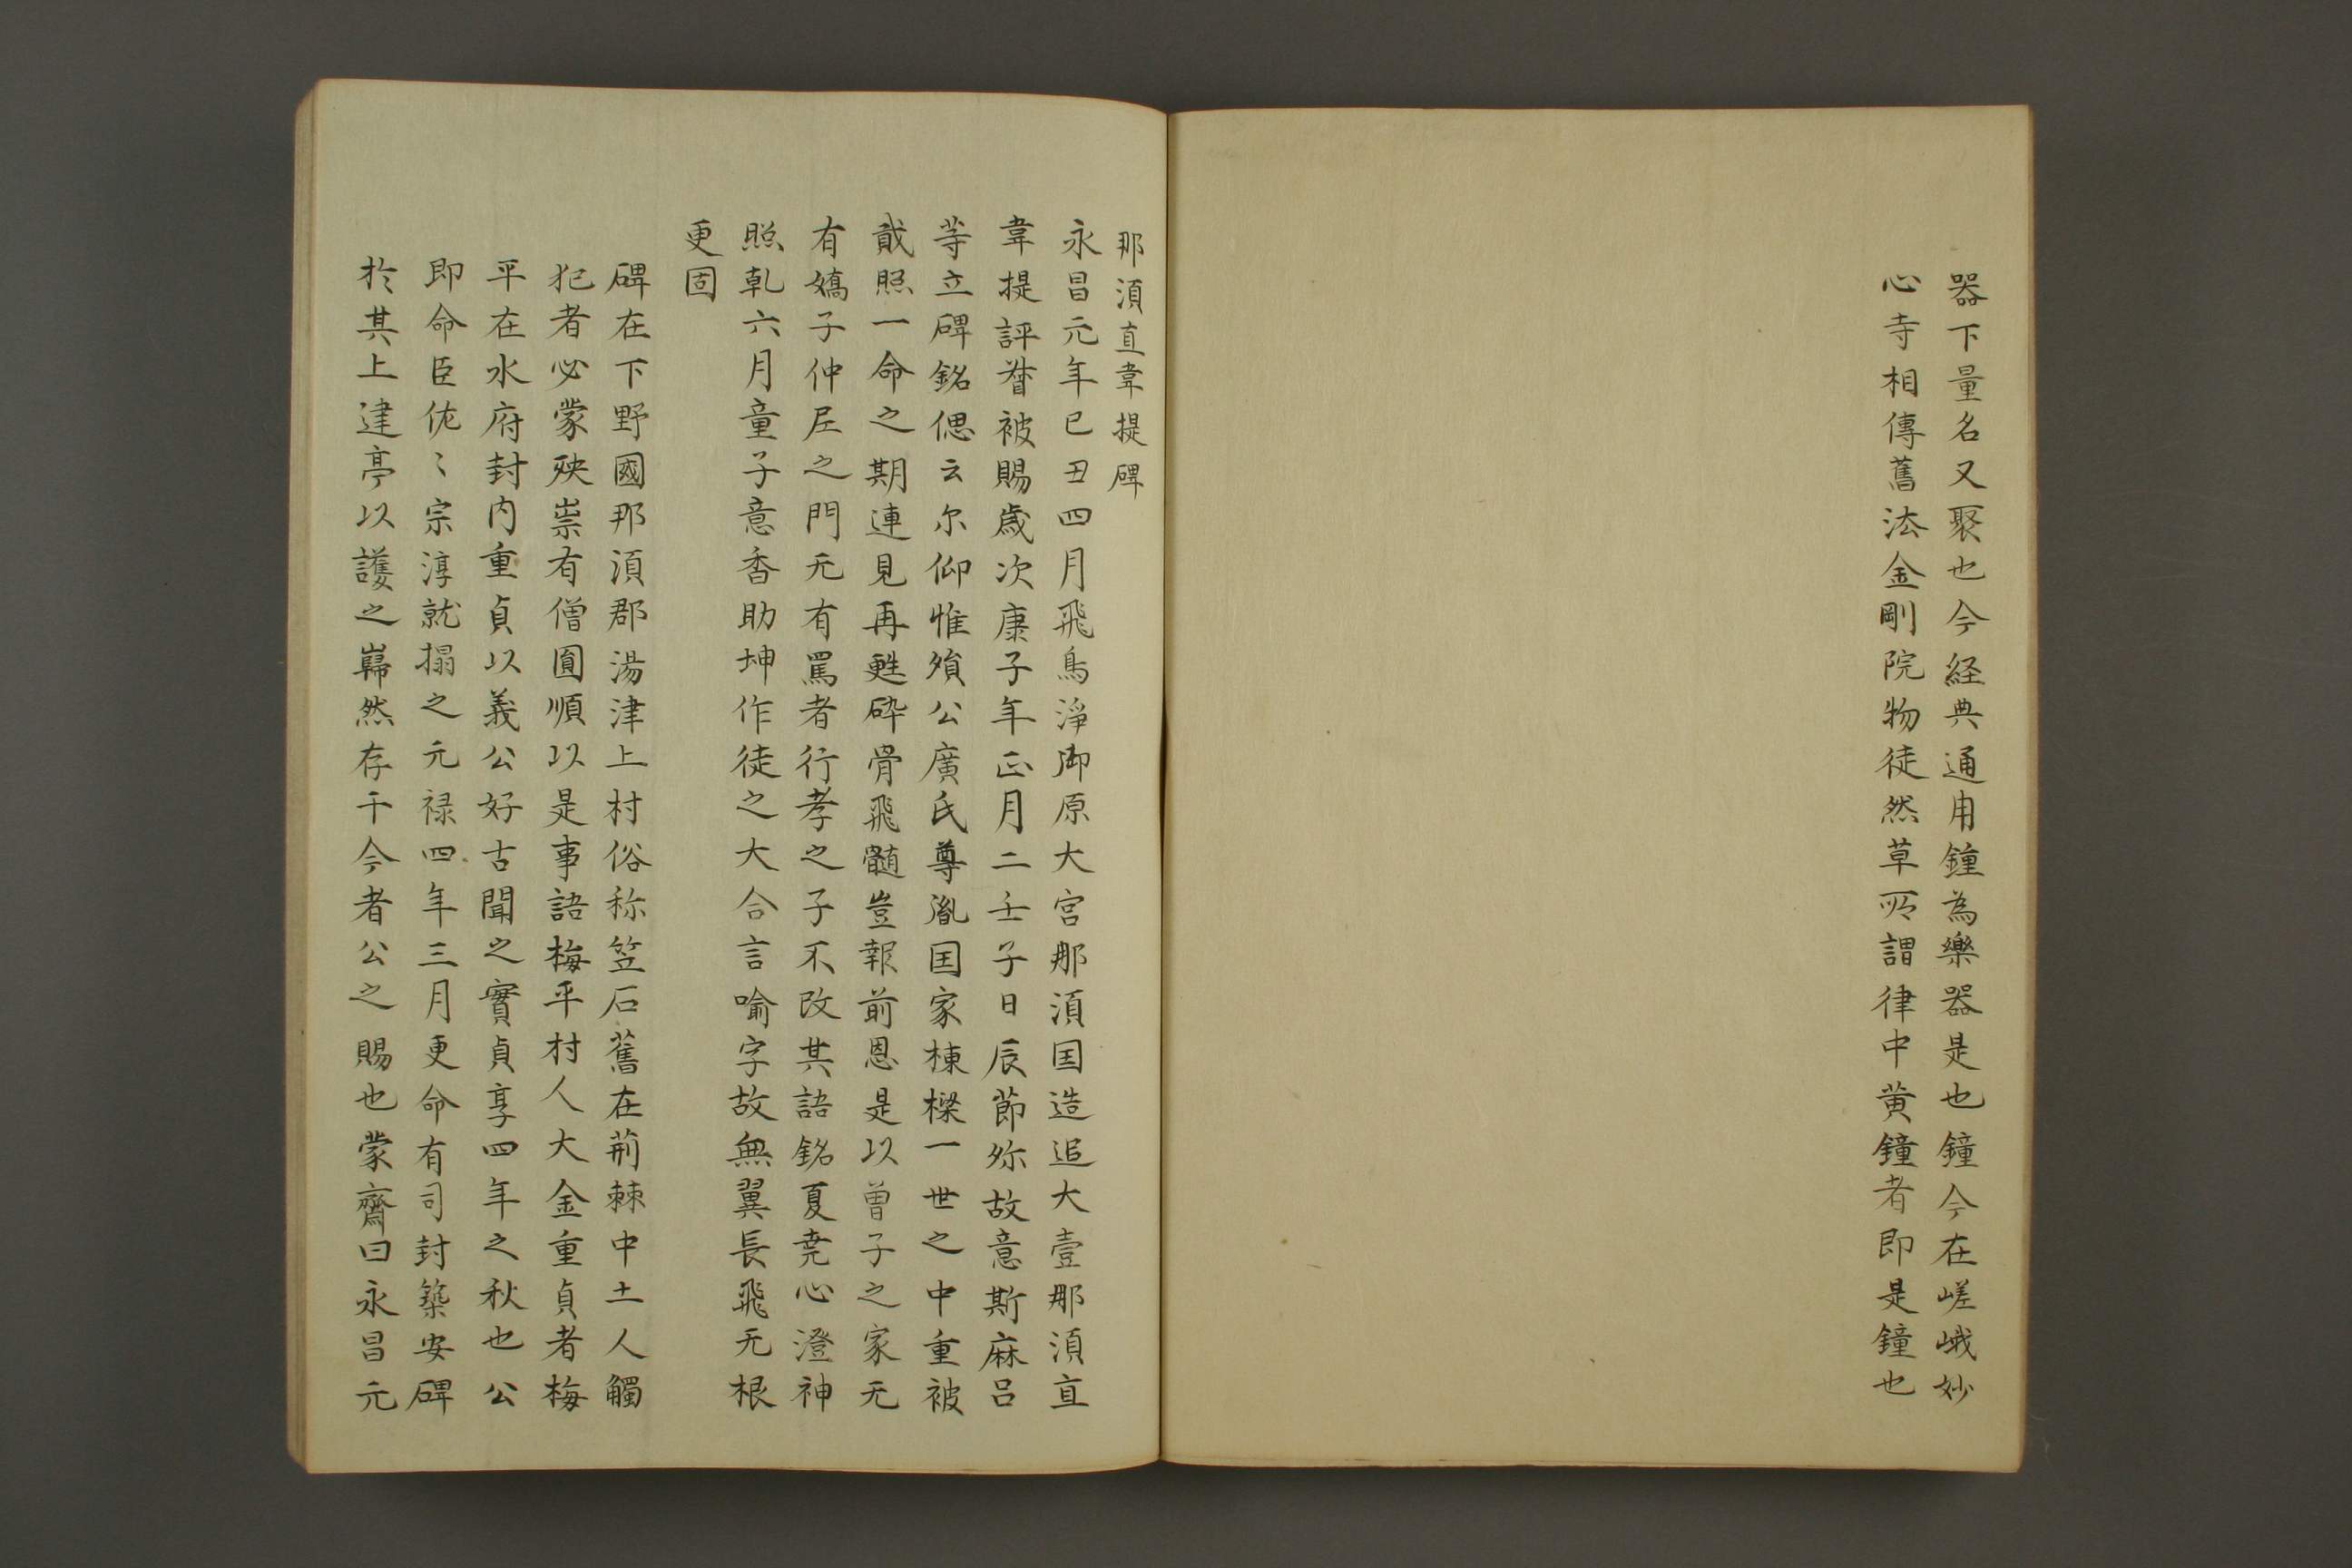 器下量名又聚也今経典通用鍾為樂器是也鐘今在嵯峨妙
心寺相傳舊法金剛院物徒然草所謂律中黄鐘者即是鐘也
那須直韋提碑
永昌元年己丑四月飛鳥淨御原大宮那須国造追大壹那須直
韋提評督被賜歳次康子年正月二壬子日辰節弥故意斯麻呂
等立碑銘偲云尓仰惟殞公廣氏尊胤国家棟樑一世之中重被
貳照一命之期連見再甦砕骨飛髓豈報前恩是以曽子之家无
有嬌子仲尼之門无有罵者行孝之子不改其語銘夏尭心澄神
照乾六月童子意香助坤作徒之大合言喻字故無翼長飛无根
更固
碑在下野國那須郡湯津上村俗称笠石舊在荊棘中土人觸
犯者必蒙殃祟有僧圓順以是事語梅平村人大金重貞者梅
平在水府封内重貞以義公好古聞之實貞享四年之秋也公
即命臣佐〻宗淳就搨之元禄四年三月更命有司封築安碑
於其上建亭以護之巋然存于今者公之賜也蒙齋曰永昌元